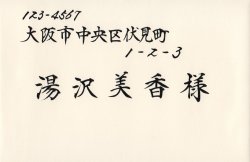 123-4567
大阪市中央区伏見町
1-2-3
湯沢美香様